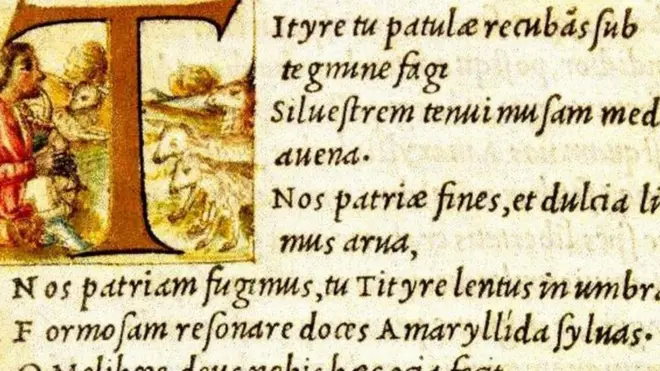 Tityre tu patulæ recubãs ſub
tegmine fagi
Silueſtrem tenui muſam med
auena.
Nos patriæ fines, et dulcia li
mus arua,
Nos patriam fugimus, tu Tityre lentus in umbra
Formoſam reſonare doces Amaryllida ſyluas.
O Melibœe, deus nobis hæc ocia fecit